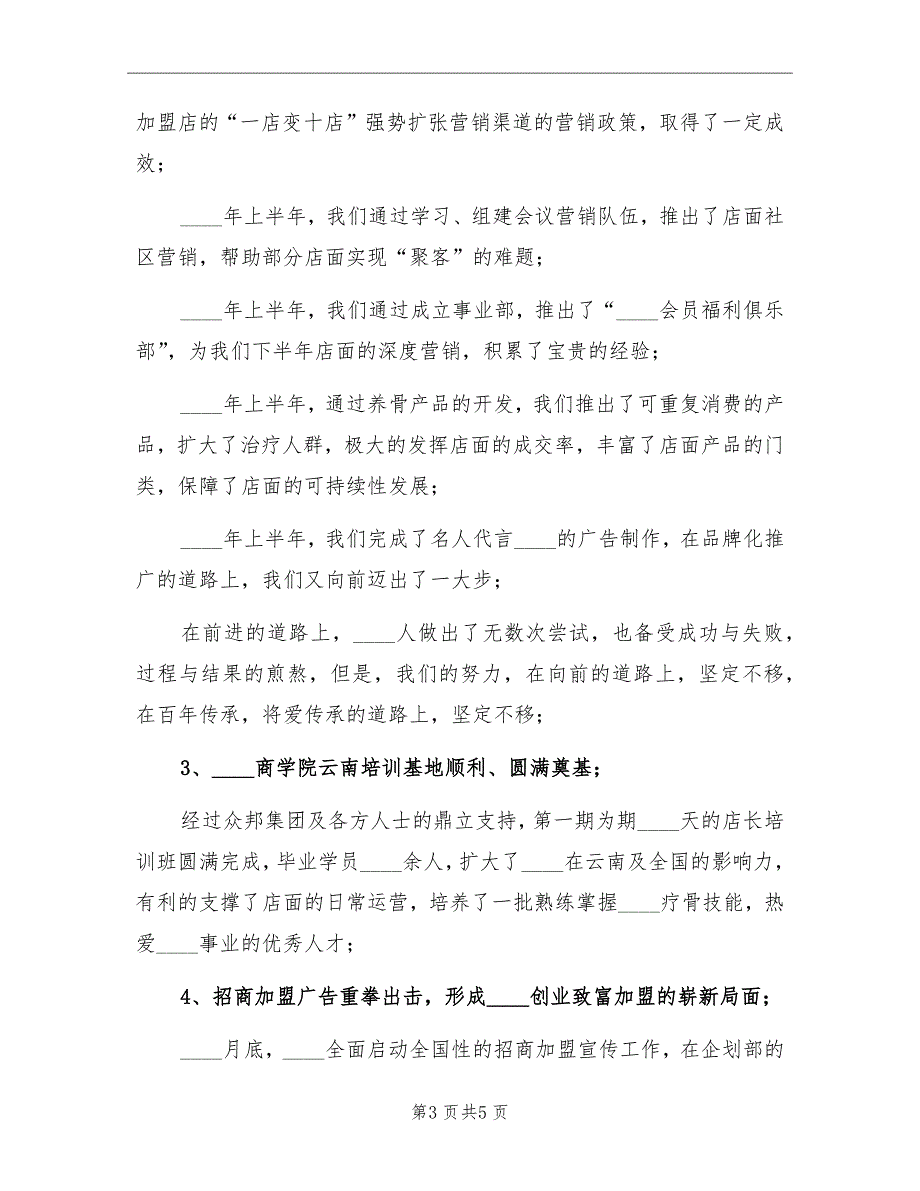 加盟店的“一店变十店”强势扩张营销渠道的营销政策，取得了一定成
效；
____年上半年，我们通过学习、组建会议营销队伍，推出了店面社
区营销，帮助部分店面实现“聚客”的难题；
____年上半年，我们通过成立事业部，推出了“____会员福利俱乐
部”，为我们下半年店面的深度营销，积累了宝贵的经验；
____年上半年，通过养骨产品的开发，我们推出了可重复消费的产
品，扩大了治疗人群，极大的发挥店面的成交率，丰富了店面产品的门
类，保障了店面的可持续性发展；
____年上半年，我们完成了名人代言____的广告制作，在品牌化推
广的道路上，我们又向前迈出了一大步；
在前进的道路上，____人做出了无数次尝试，也备受成功与失败，
过程与结果的煎熬，但是，我们的努力，在向前的道路上，坚定不移，
在百年传承，将爱传承的道路上，坚定不移；
3、____商学院云南培训基地顺利、圆满奠基；
经过众邦集团及各方人士的鼎立支持，第一期为期____天的店长培
训班圆满完成，毕业学员____余人，扩大了____在云南及全国的影响力，
有利的支撑了店面的日常运营，培养了一批熟练掌握____疗骨技能，热
爱____事业的优秀人才；
4、招商加盟广告重拳出击，形成____创业致富加盟的崭新局面；
____月底，____全面启动全国性的招商加盟宣传工作，在企划部的
第3 页共5 页